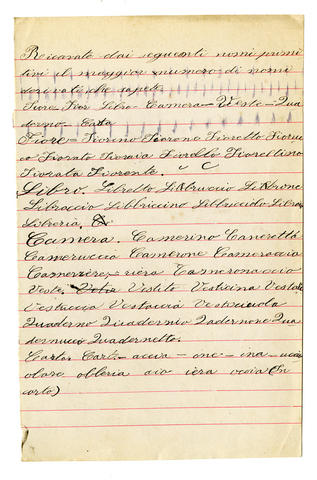 Ricavate dai seguenti nomi primi
tivi il maggior numero di nomi
derivati che sapete.
Fiore Fior Libro Camera Veste Qua
derno Carta
Fiore Fiorino Fiorone Fioretto
Fiorato Fioraia Fiorellino
Fiorata Fiorente.
Libro. Libretto Libbruccio Libbrone
Libraccio Libbriccino Libbricciolo
Libreria.
Camera. Camerino Cameretta
Cameruccia Camerone Cameraccia
Cameriere riera Cameronaccio
Veste. Vestito Vesticina Vestata
Vestuccia Vestaccia Vesticciuola
Quaderno Quadernio Qadernone Qua
dernuccio Quadernetto.
Carta Cart accia one ina uccia
olare oleria aio iera
carto)